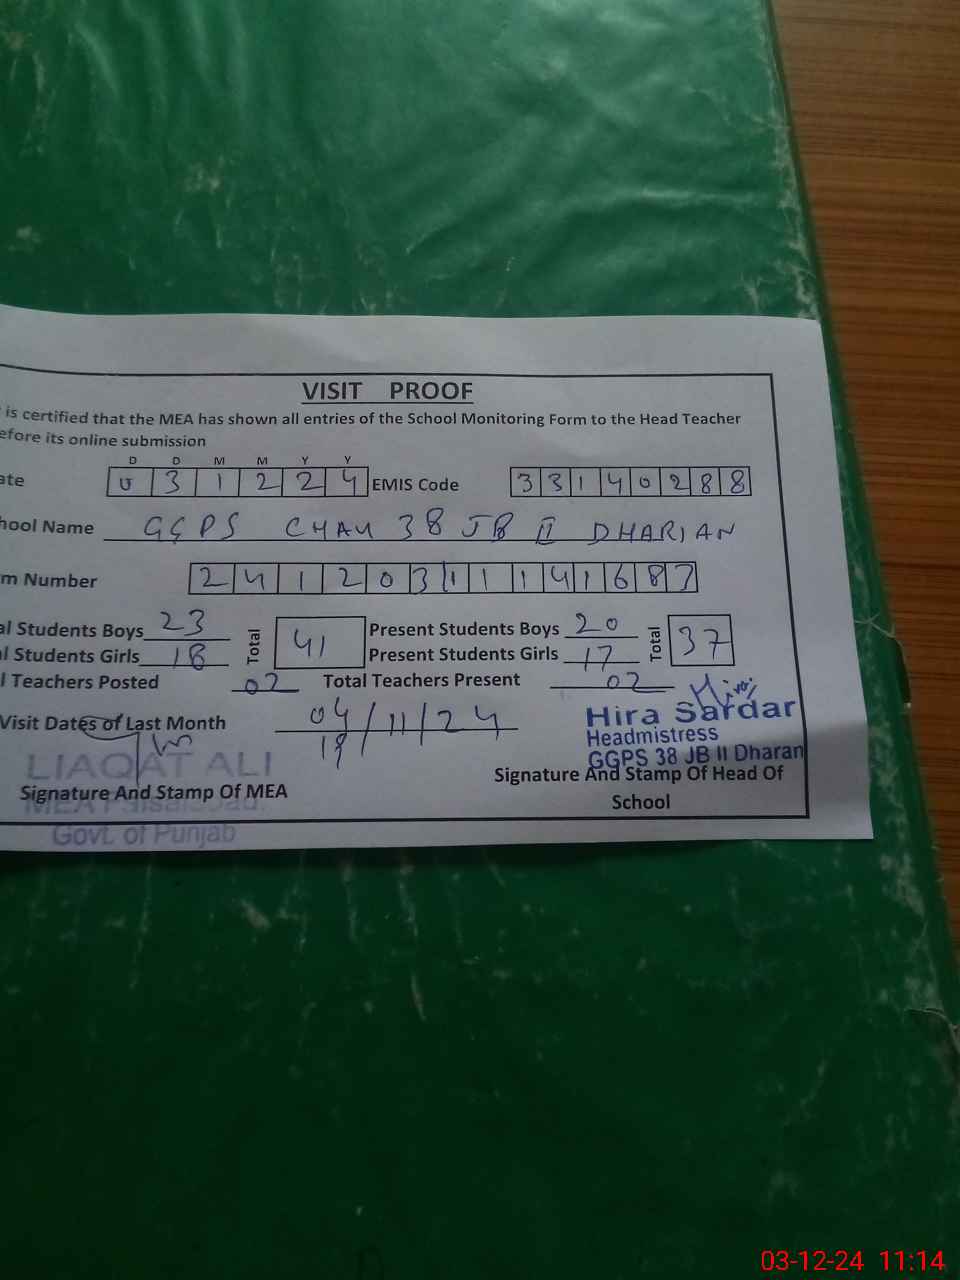 VISIT PROOF
is certified that the MEA has shown all entries of the School Monitoring Form to the Head Teacher
efore its online submission
D D M M Y Y
ate 0 3 1 2 2 4 EMIS Code 3 3 1 4 0 2 8 8
hool Name GGPS CHAK 38 JB II DHARIAN
m Number 2 4 1 2 0 3 1 1 1 4 1 6 8 7
al Students Boys 23 Total 41 Present Students Boys 20 Total 37
al Students Girls 18 Present Students Girls 17
l Teachers Posted 02 Total Teachers Present 02
Visit Dates of Last Month 04/11/24
19
Hira Sardar
Headmistress
GGPS 38 JB II Dharan
LIAQAT ALI
Signature And Stamp Of MEA
Signature And Stamp Of Head Of
School
MEA Faisalabad.
Govt. of Punjab
03-12-24 11:14